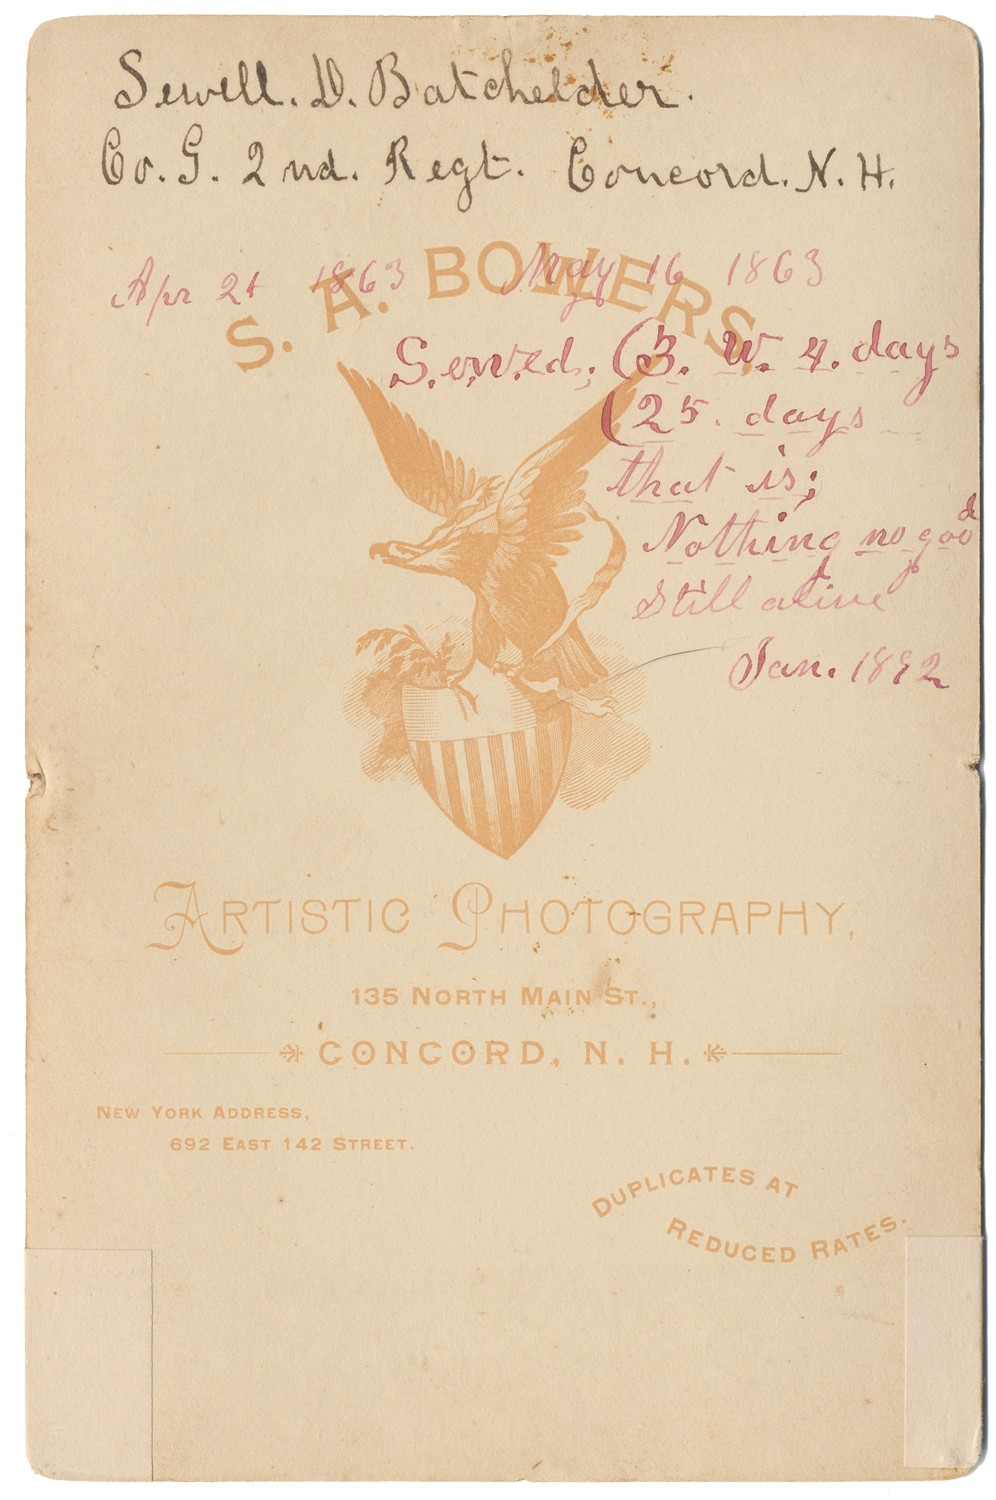 Sewell. D. Batchelder.
Co. G. 2nd. Regt. Concord. N. H.
Apr 21 1863 May 16 1863
S. A. BOWERS.
Served; (3. W. 4. days
(25. days
that is;
Nothing no good
Still alive
Jan. 1892
ARTISTIC PHOTOGRAPHY,
135 NORTH MAIN ST.,
CONCORD, N. H.
NEW YORK ADDRESS,
692 EAST 142 STREET.
DUPLICATES AT
REDUCED RATES.